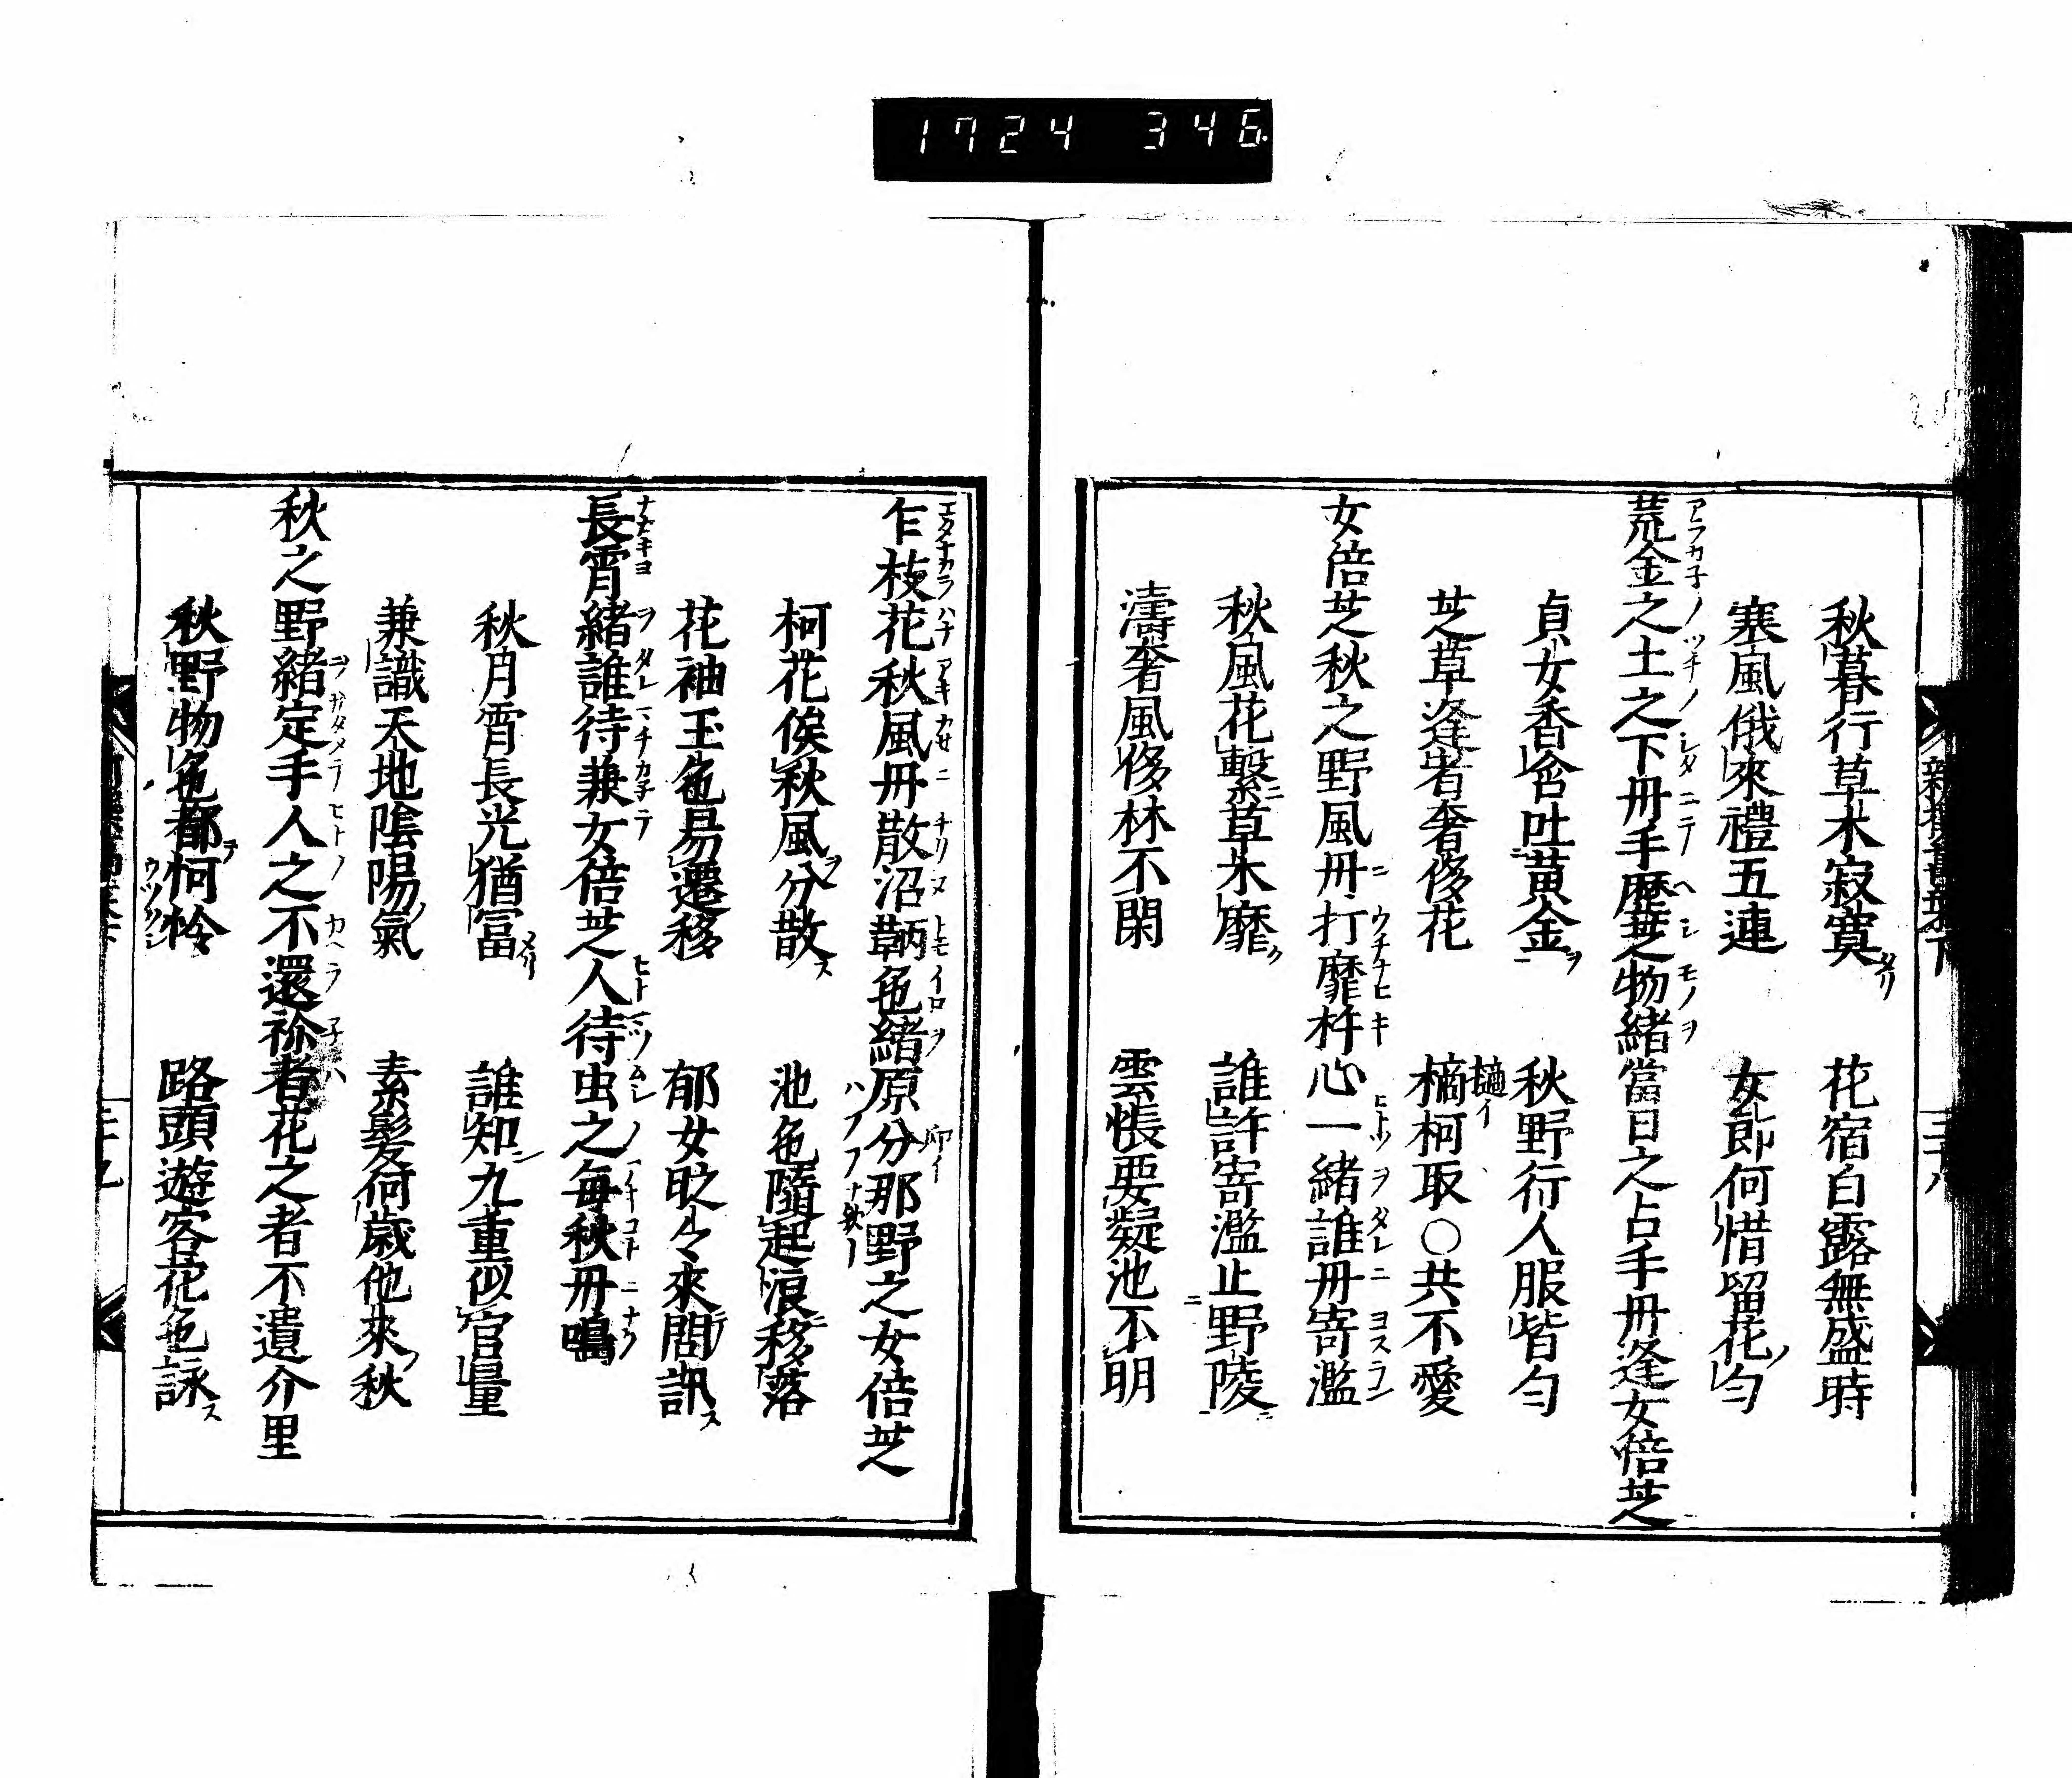 1724 346
新撰萬葉下
三十八
秋暮行草木寂寞 花宿白露無盛時
寒風俄來禮五連 女郎何惜留花匂
荒金之土之下丹手歷芝物緒當日之占手丹逢女倍芝
貞女香含吐黃金 秋野行人服皆匂
芝草逢者奢侈花 樀柯取○共不愛
女倍芝秋之野風丹打靡杵心一緒誰丹寄濫
秋風花繫草木靡 誰許寄濫止野陵
濤奢風侈林不閑 雲帳要凝池不明
乍枝花秋風丹散沼鞆色緒原分那野之女倍芝
柯花俟秋風分散 池色隨起浪移落
花袖玉色易遷移 郁女眇々來問訊
長霄緒誰待兼女倍芝人待虫之每秋丹鳴
秋月霄長光猶冨 誰知九重似官量
兼識天地陰陽氣 素髮何歲他來秋
秋之野緒定手人之不還祢者花之者不遺介里
秋野物色都柯怜 路頭遊客花色詠
三十九